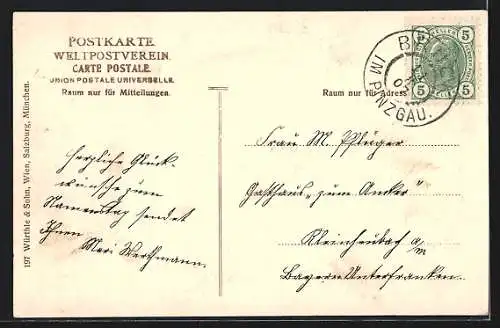 POSTKARTE.
WELTPOSTVEREIN.
CARTE POSTALE.
UNION POSTALE UNIVERSELLE.
Raum nur für Mitteilungen.
Raum nur für Adresse
5 5
5 5
IM PINZGAU.
197 Würthle & Sohn, Wien, Salzburg, München.
Herzliche Glück-
wünsche zum
Namenstag sendet
Ihnen
Mari Werthmann.
Frau M. Pflüger
Gasthaus „zum Anker“
Kleinheubach a/m
Bayern Unterfranken.